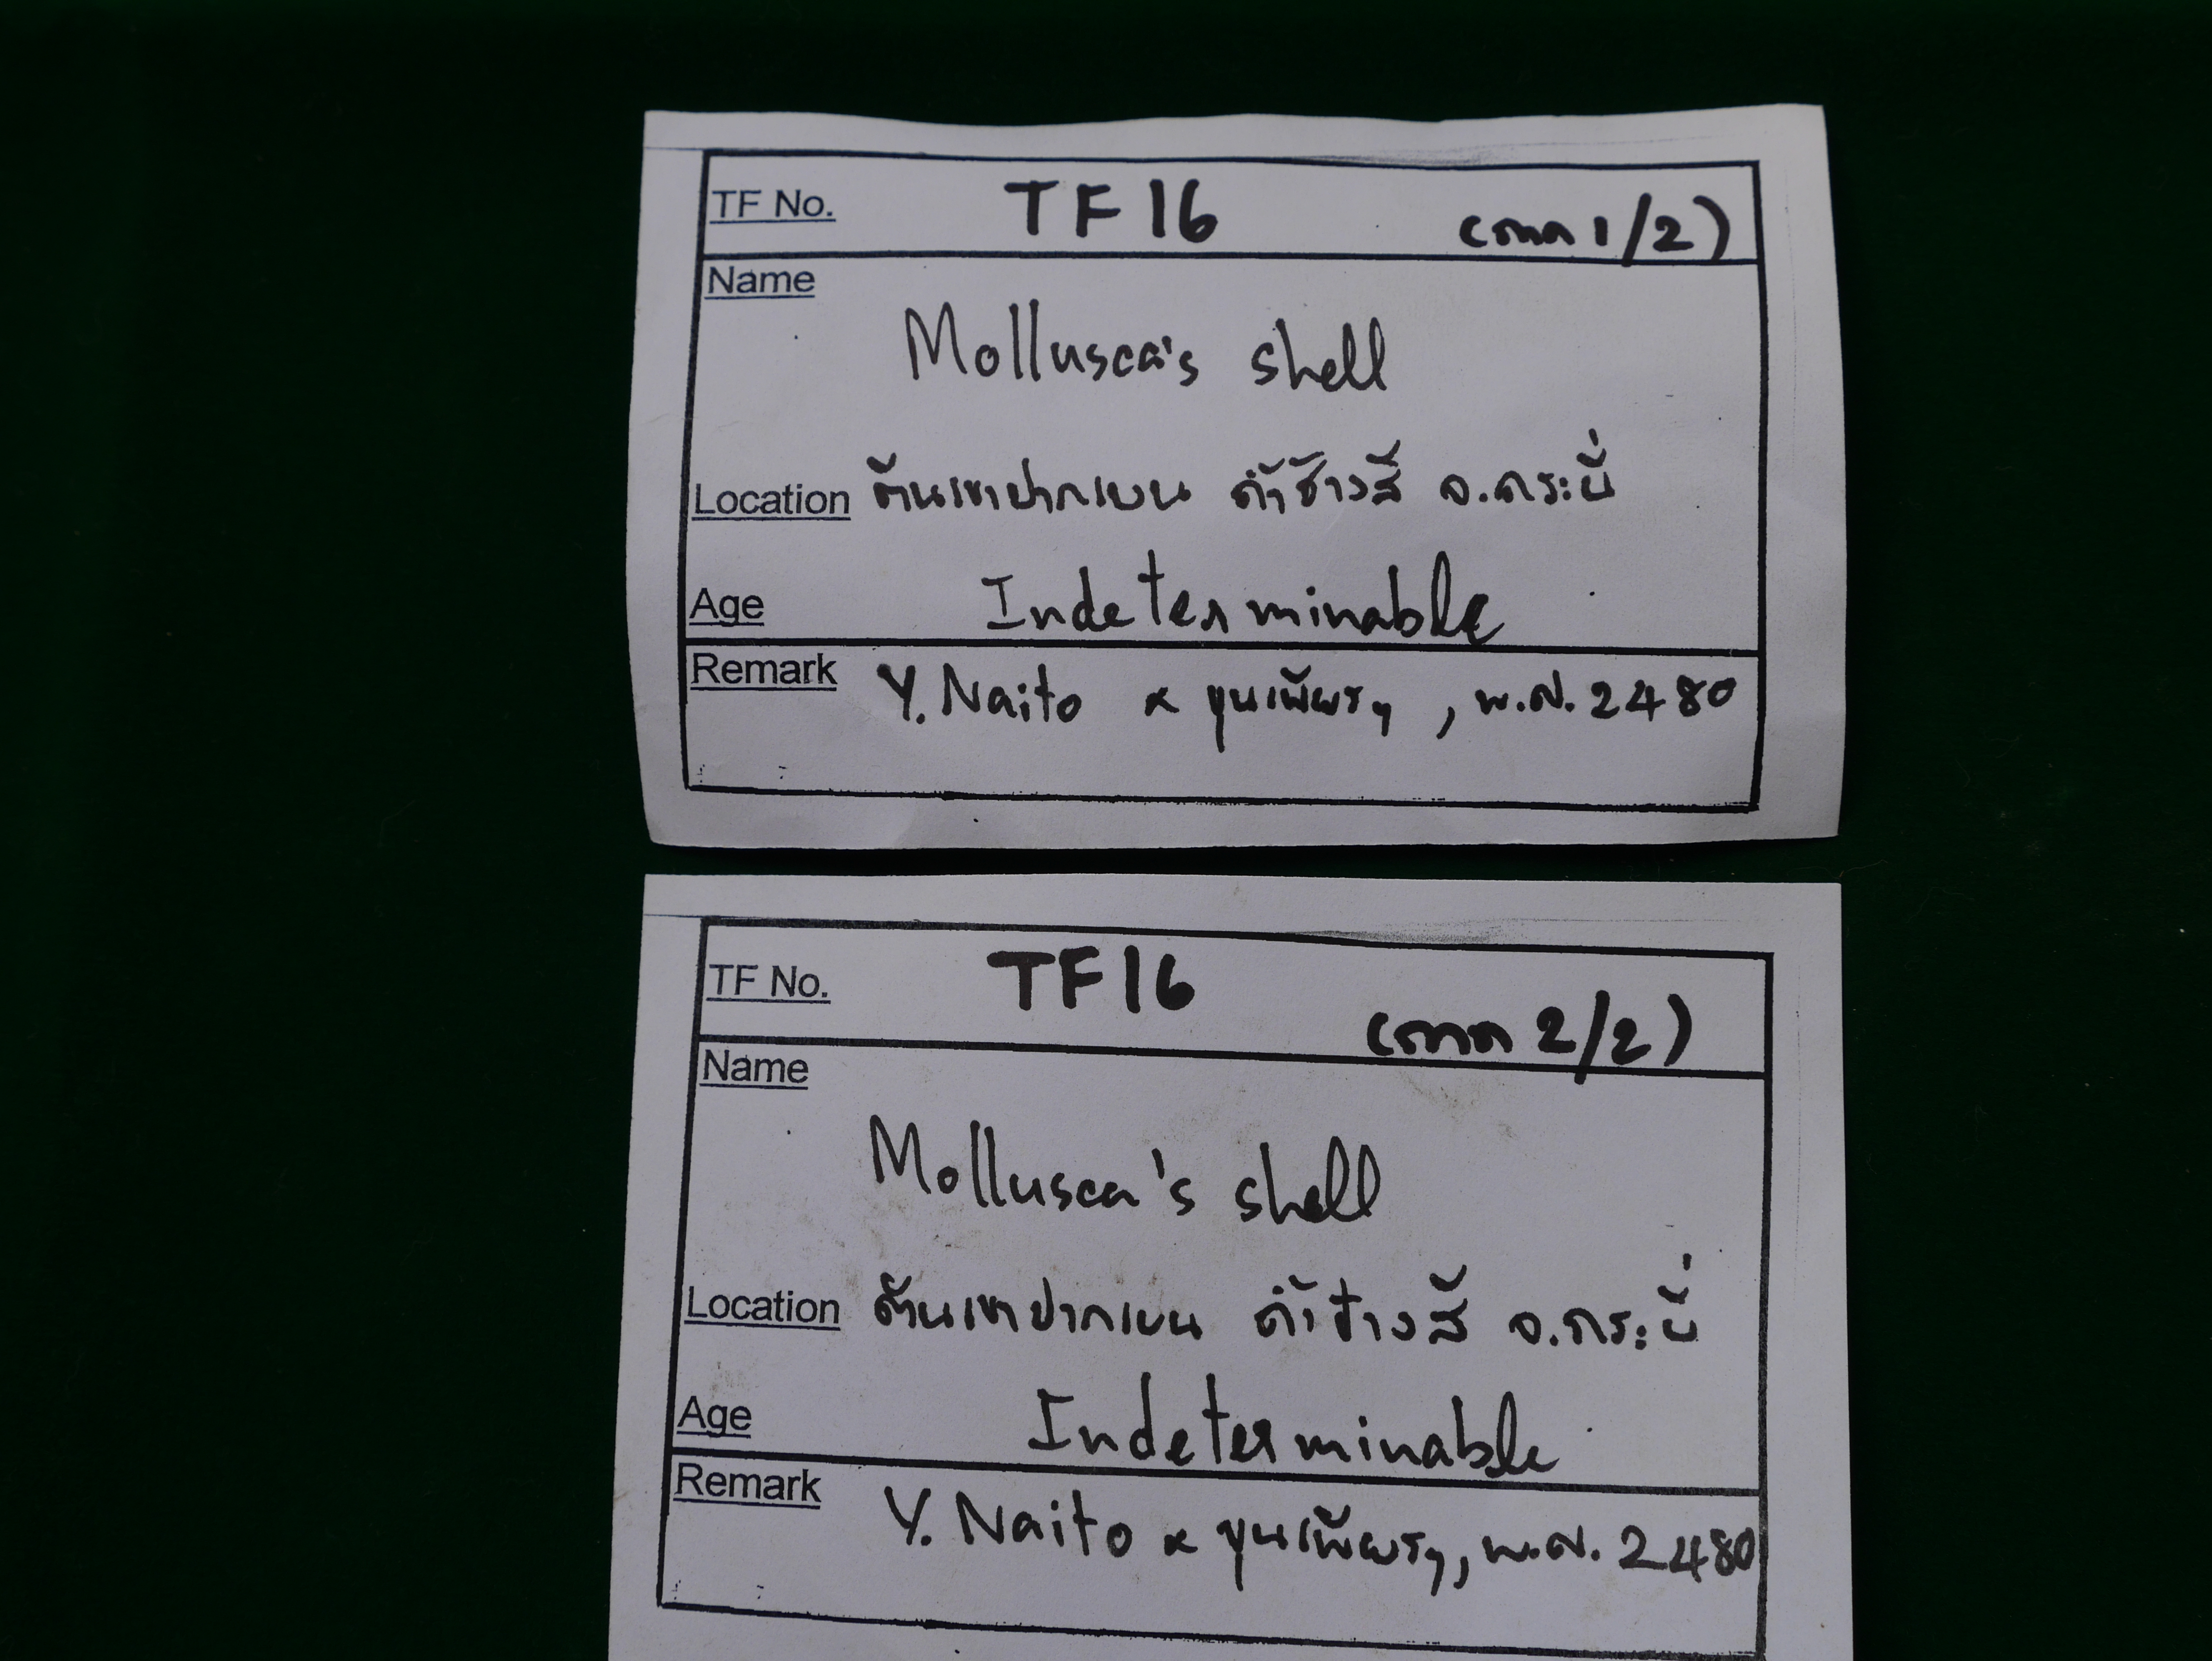 TF No. TF 16 (ถาด 1/2)
Name
Mollusca's shell
Location ต้นเขาปากแบน ถ้ำช้างสี จ.กระบี่
Age Indeterminable
Remark Y. Naito & ขุนเพียรฯ, พ.ศ. 2480
TF No. TF 16 (ถาด 2/2)
Name
Mollusca's shell
Location ต้นเขาปากแบน ถ้ำช้างสี จ.กระบี่
Age Indeterminable
Remark Y. Naito & ขุนเพียรฯ, พ.ศ. 2480